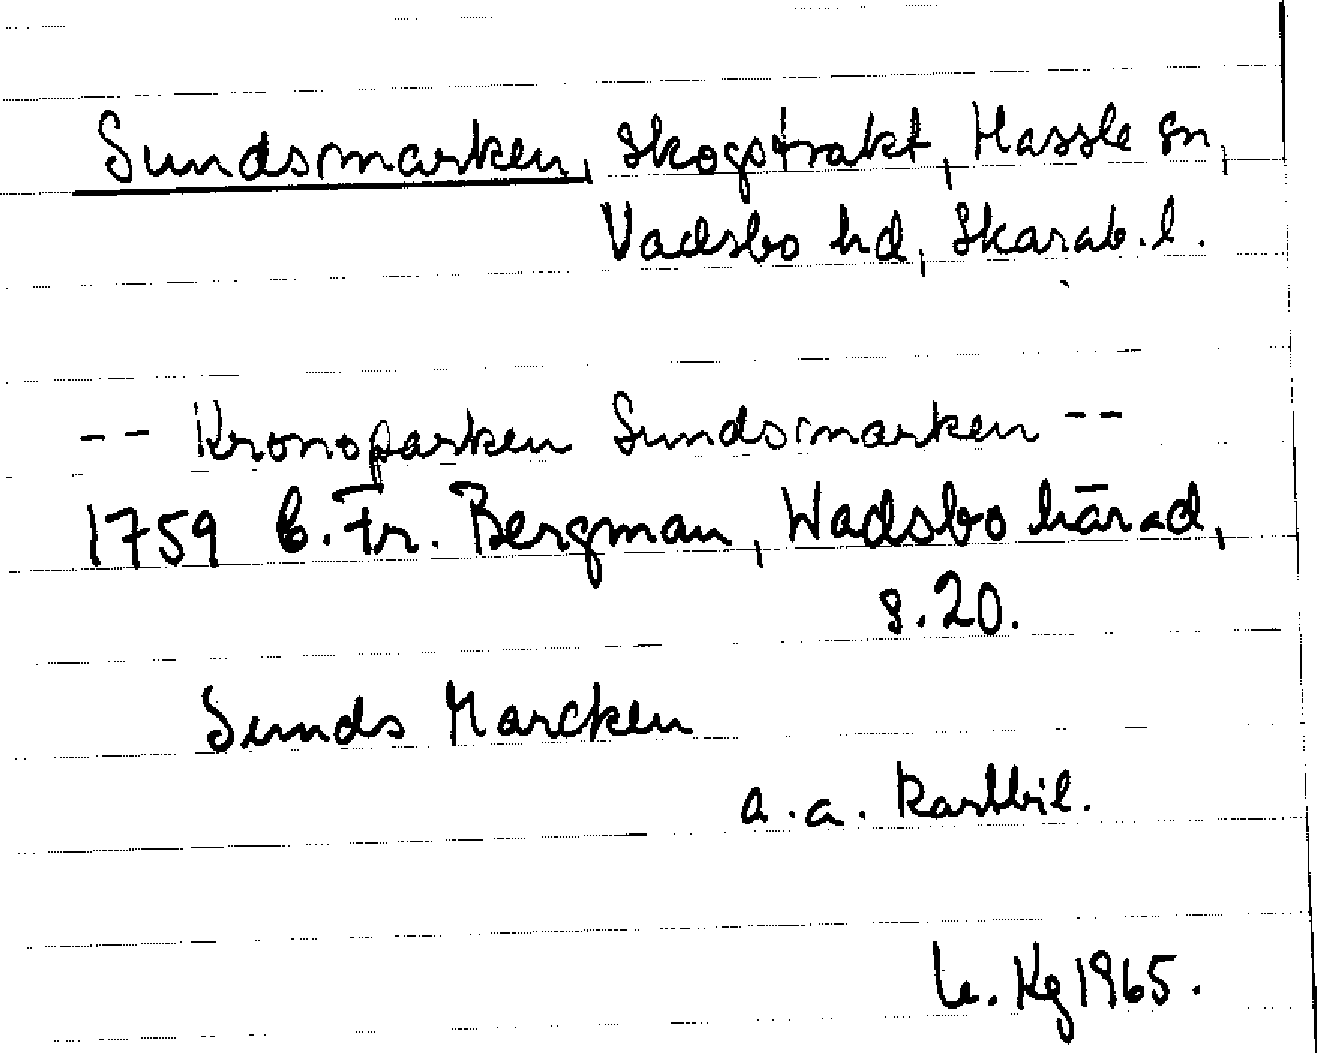 Sundsmarken, Skogstrakt, Hassle sn,
Vadsbo hd, Skarab.l.
-- Kronoparken Sundsmarken --
1759 C. Fr. Bergman, Wadsbo härad,
s.20.
Sunds Marcken
a.a. kartbil.
Kg 1965.